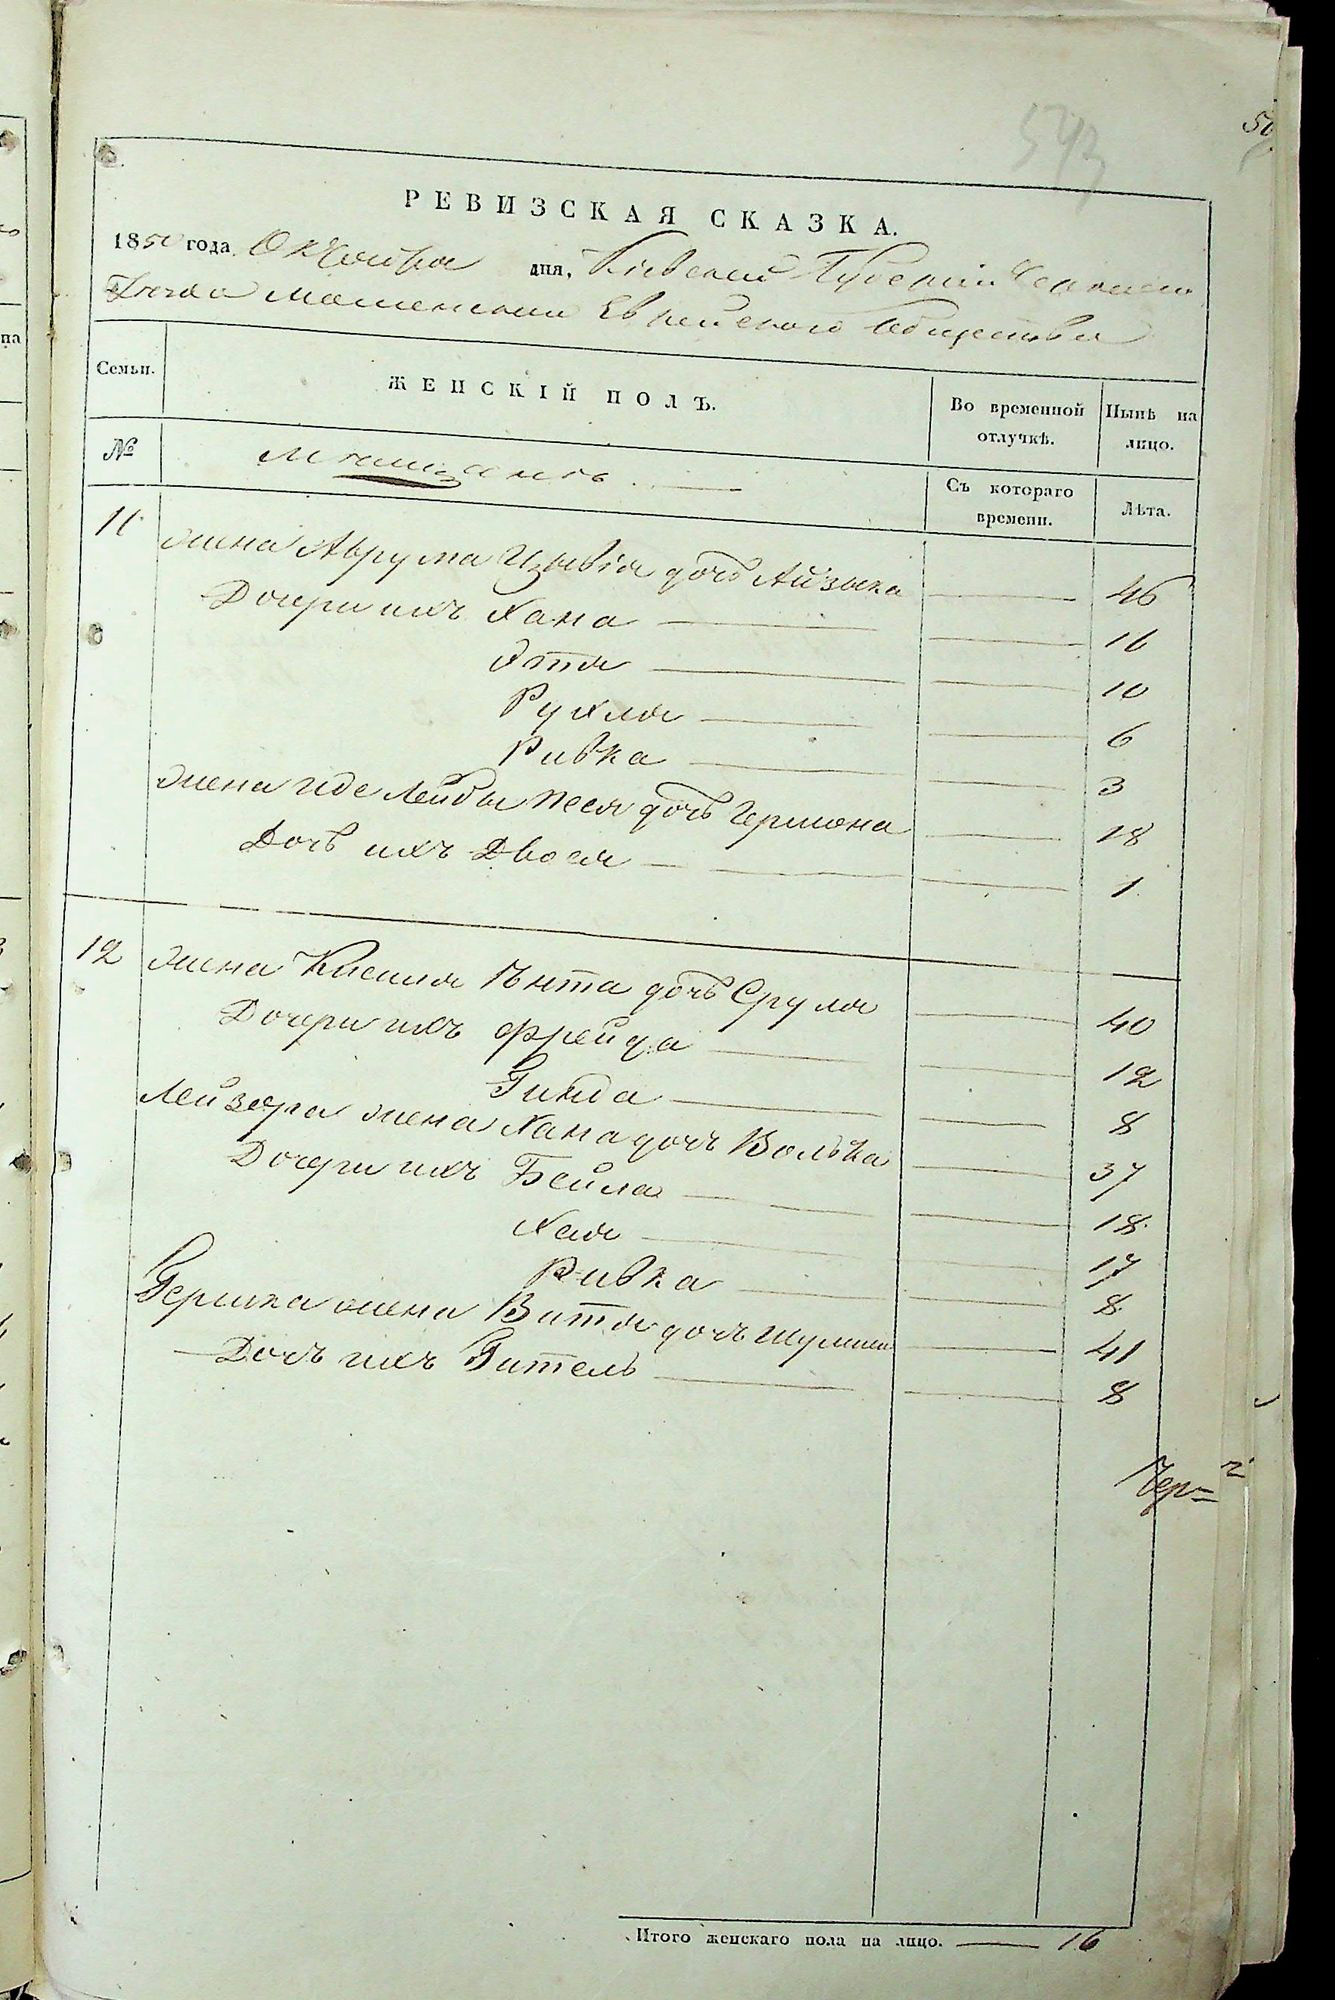 593
РЕВИЗСКАЯ СКАЗКА.
1850 года. Октября дня, Кіевской Губерніи Черкаск
Уезда Мошенскаго Еврейского Общества
Семьи. ЖЕНСКІЙ ПОЛЪ. Во временной отлучкѣ. Нынѣ на лицо.
№ Мѣщанъ. Съ котораго времени. Лѣта.
11 жена Аврума Цывія дочь Айзыка 46
Дочери ихъ Хана 16
Этя 10
Рухля 6
Ривка 3
жена Лейбы Песя дочь Гершона 18
Дочь ихъ Двося 1
12 жена Кисиля Ента дочь Сруля 40
Дочери ихъ Фрейда 12
Гинда 8
Лейзора жена Хана дочь Волька 37
Дочери ихъ Бейла 18
Хая 17
Ривка 8
Гершка жена Витя дочь Шулима 41
Дочь ихъ Гитель 8
Чер=
Итого женскаго пола на лицо. 16